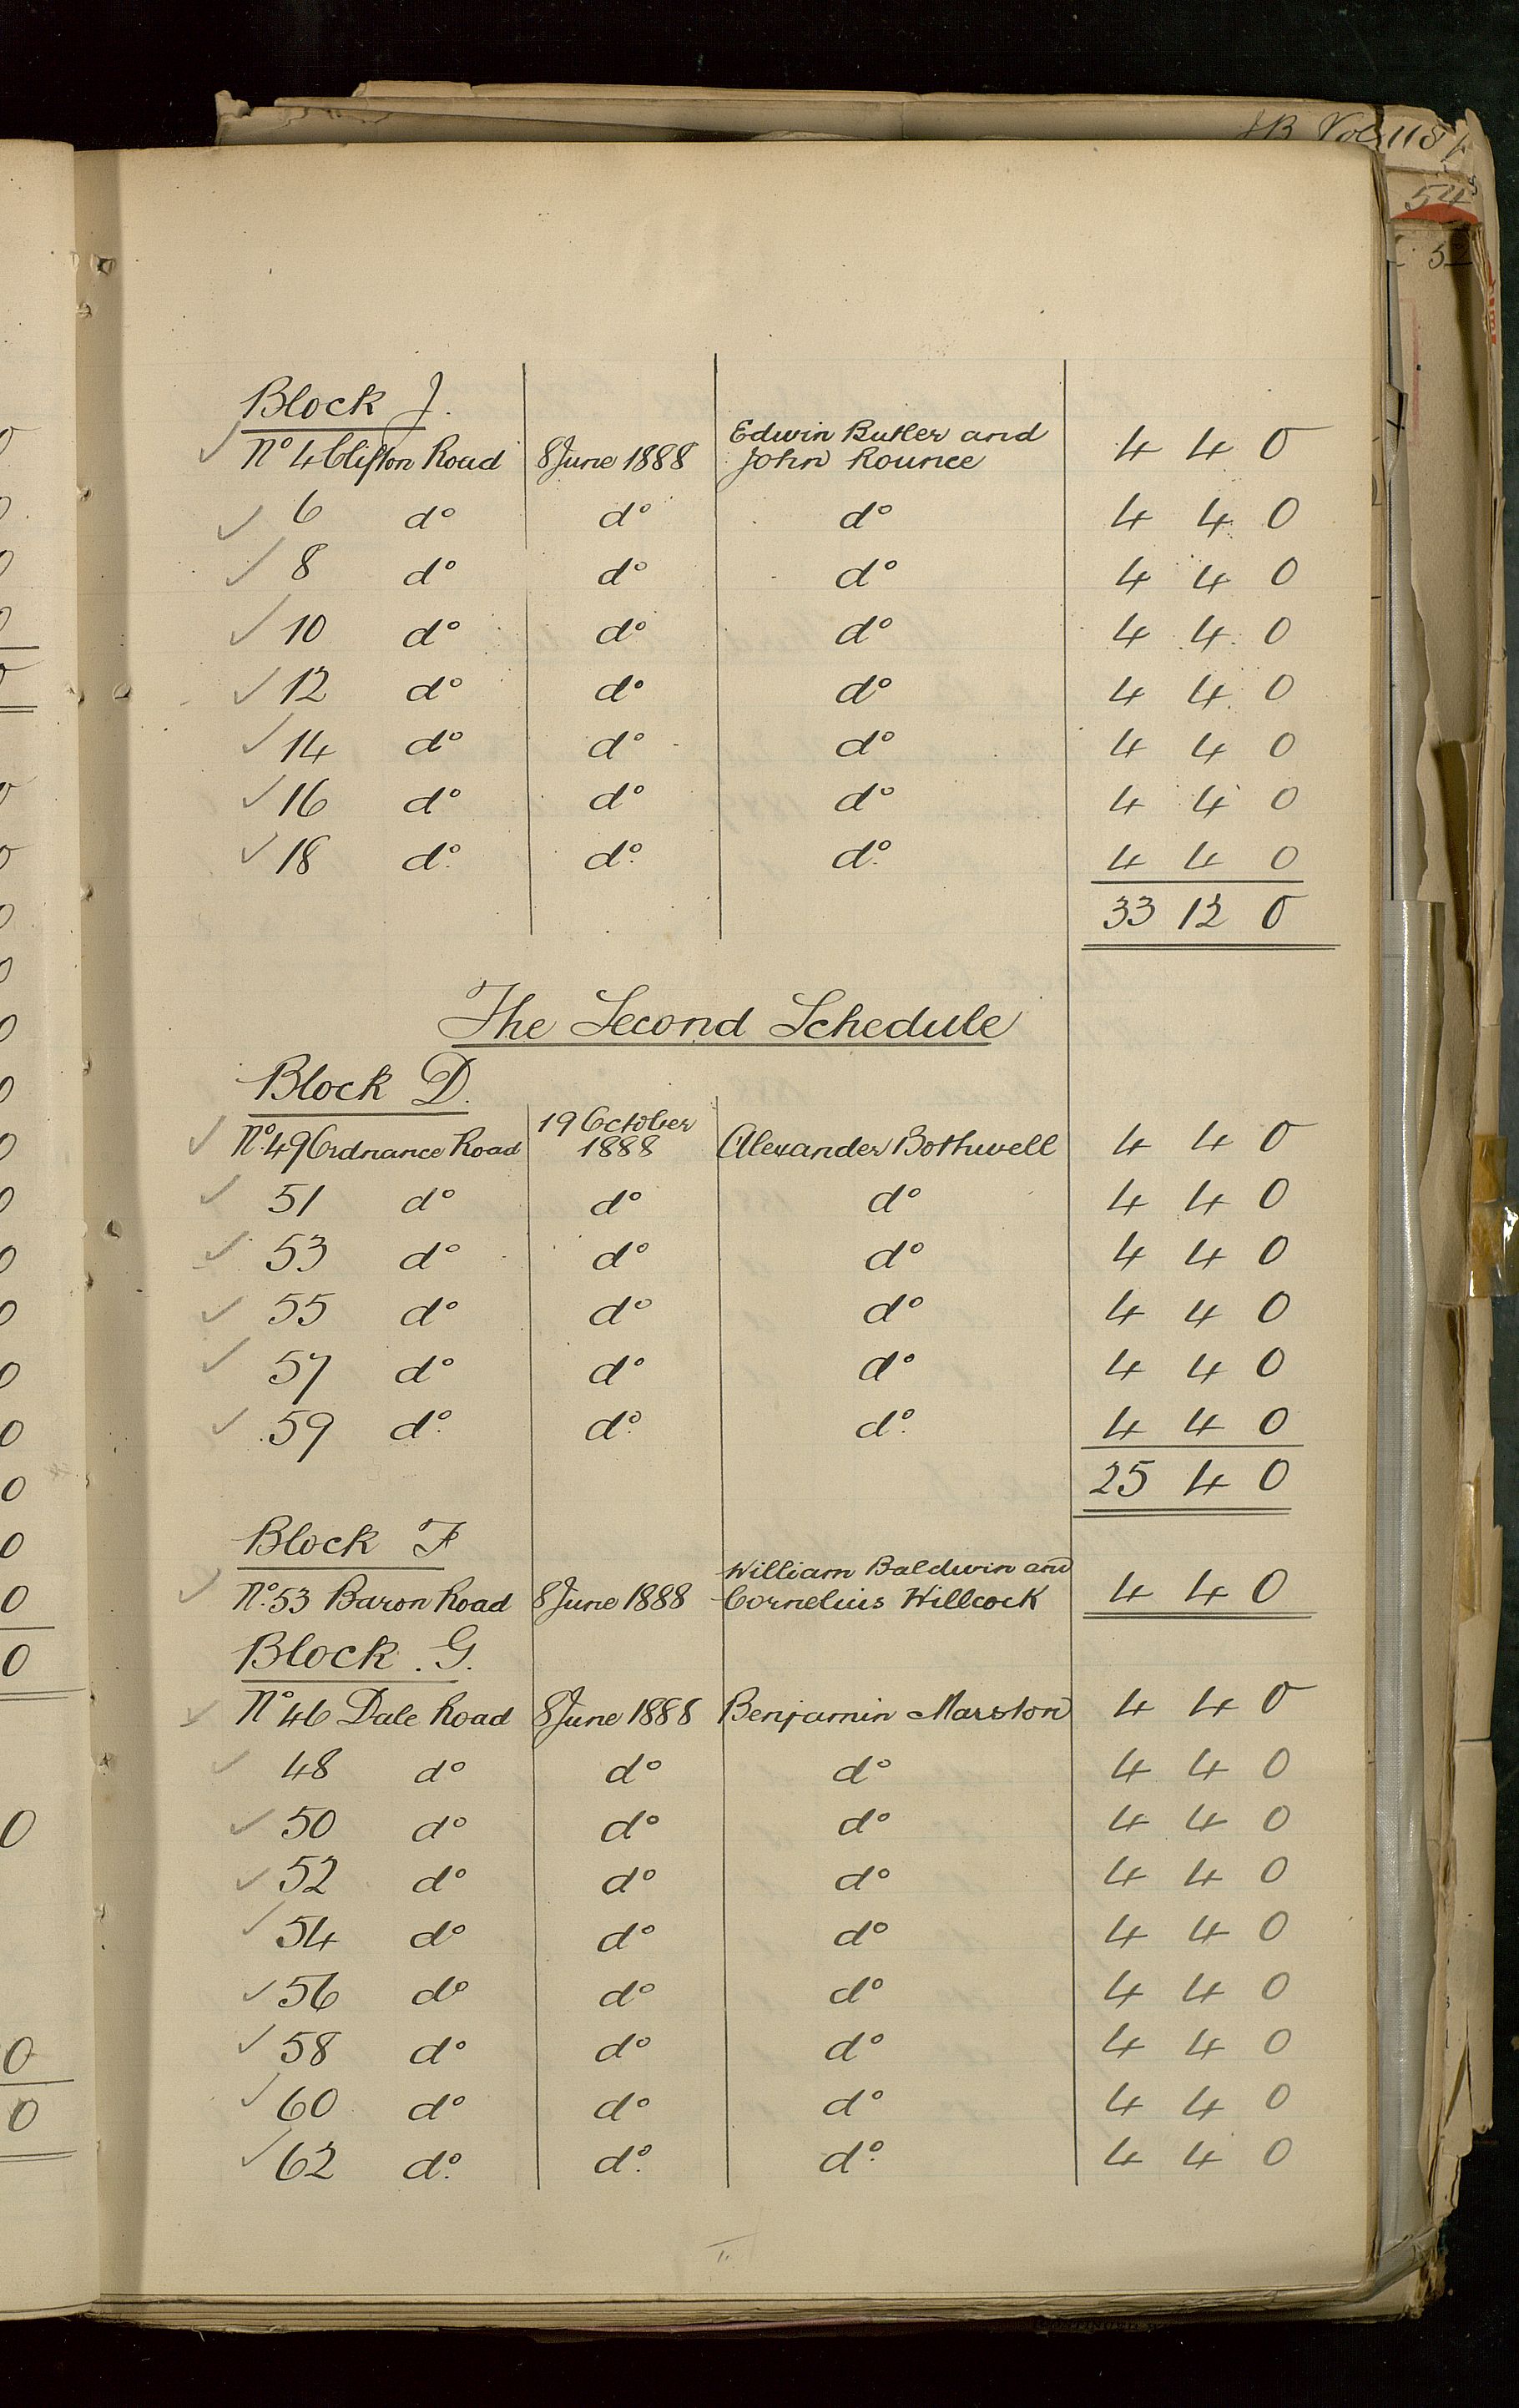 JB Vol 118
54
Block J.
No 4 Clifton Road 8 June 1888 Edwin Butler and John Rounce 4 4 0
6 do do do 4 4 0
8 do do do 4 4 0
10 do do do 4 4 0
12 do do do 4 4 0
14 do do do 4 4 0
16 do do do 4 4 0
18 do. do. do. 4 4 0
33 12 0
The Second Schedule
Block D.
No. 49 Ordnance Road 19 October 1888 Alexander Bothwell 4 4 0
51 do do do 4 4 0
53 do do do 4 4 0
55 do do do 4 4 0
57 do do do 4 4 0
59 do. do. do. 4 4 0
25 4 0
Block F
No. 53 Baron Road 8 June 1888 William Baldwin and Cornelius Willcock 4 4 0
Block G.
No 46 Dale Road 8 June 1888 Benjamin Marston 4 4 0
48 do do do 4 4 0
50 do do do 4 4 0
52 do do do 4 4 0
54 do do do 4 4 0
56 do do do 4 4 0
58 do do do 4 4 0
60 do do do 4 4 0
62 do. do. do. 4 4 0